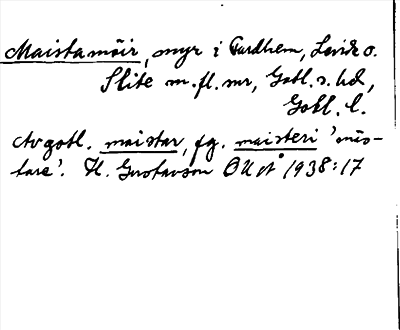 Maistamöir, myr i Gardhem, Levide o.
Slite m.fl. snr, Gotl. s. hd,
Gotl. l.
Av gotl. maistar, fg. maisteri 'mäs-
tare'. H. Gustavson OUÅ 1938:17